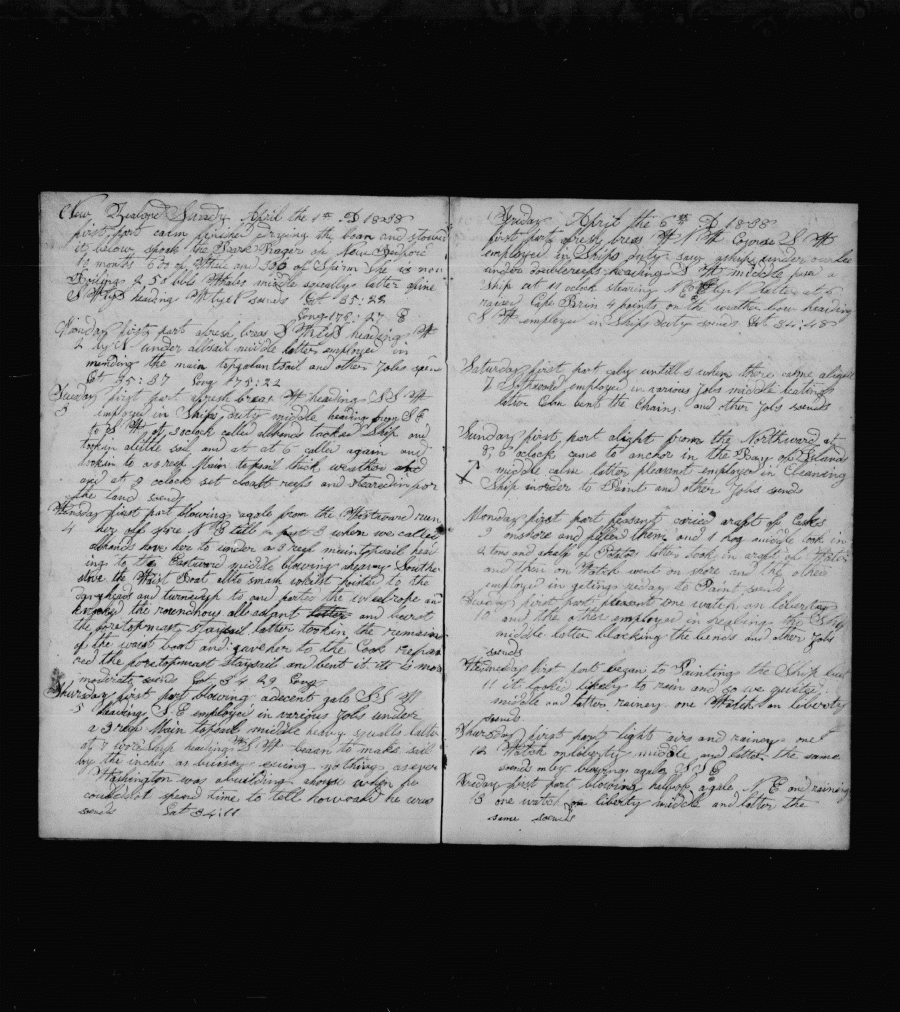 New Zealand Sunday April the 1st D 1838
first part calm finished drying the boan and stowed
it below spoke the Bark Roger of New Bedford
19 months 600 of Whale and 350 of Sperm She is now
Boiling 2 50 bbls Whales middle squally latter a fine
S W by S heading W by N sounds Lat 35:28
Long 178:27 E
Monday first part afresh breas S W by S heading W
2 by N under all sail middle latter employed in
mending the main topgalantsail and other Jobs
Lat 35:37 Long 175:22
Tuesday first part afresh breas W heading S S W
3 employed in Ships duty middle heading from S E
to S W at 3 oclock called all hands tacked Ship and
tookin alittle sail and at at 6 called again and
tookin to a 3 reef Main topsail thick weather and
and at 9 oclock set close reefs and steared in for
the land sounds
Wensday first part blowing agale from the Westward run
4 her off shore N E till ½ past 3 when we called
allhands hove her to under a 3 reef maintopsail head
ing to the Eastward middle blowing heavy Southe
stove the Waist Boat all to smash
and turned up to and parted the
the roundhouse all adaft latter and burst
the foretopmast staysail latter tookin the remains
of the waist boat and gave her to the Cook repair
red the foretopmast staysail and bent it its is mor
moderate sounds Lat 34 29 Long
Thursday first part blowing adecent gale S S W
5 heading S E employed in various Jobs under
a 3 reef Main topsail middle heavy squalls latter
at 7 wore ship heading S W began to make sail
by the inches as buissy seeing nothing as ever
Washington was abuilding ahouse when he
could not spend time to tell how old he was
sounds Lat 34:11
Friday April the 6th D 1838
first part afresh breas W N W Course S W
employed in Ships Duty saw aship under our lee
under doublereefs heading S W middle pass a
Ship at 11 oclock stearing N E by N latter at 6
raised Cape Brin 4 points on the weather bow heading
S W employed in Ships duty sounds Lat 34:48
Saturday first part calm untill 5 when there came alight
7 Southward employed in various Jobs middle beating
latter Calm bent the Chains and other Jobs sounds
Sunday first part alight from the Northward at
8 6 oclock came to anchor in the Bay of Island
middle calm latter pleasent employed in Cleaning
Ship inorder to Paint and other Jobs sounds
Monday first part pleasant caried araft of Casks
9 onshore and filled them and 1 hog middle took in
2 tons and ahalf of Potatos latter took in araft of Water
and then on Watch went on shore and the other
employed in getting reday to Paint sounds
Tuesday first part pleasent one watch on liberty
10 and the other employed in the Ship
middle latter blacking the bends and other Jobs
sounds
Wednesday first part began to Painting the Ship but
11 it looked likely to rain and so we quited
middle and latter rainey one Watch on liberty
sounds
Thursday first part light airs and rainey one
12 Watch on liberty middle and latter the same
sounds blowing agale N E
Friday first part blowing agale N E and raining
13 one watch on liberty middle and latter the
same sounds